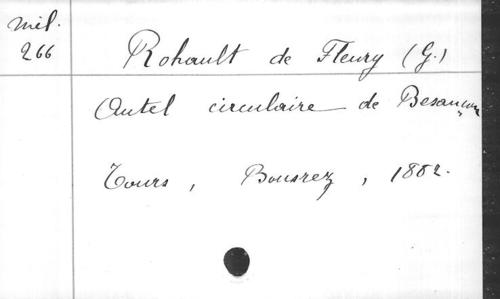 Mél.
266
Rohault de Fleury (G.)
Autel circulaire de Besançon
Tours, Bousrez, 1882.